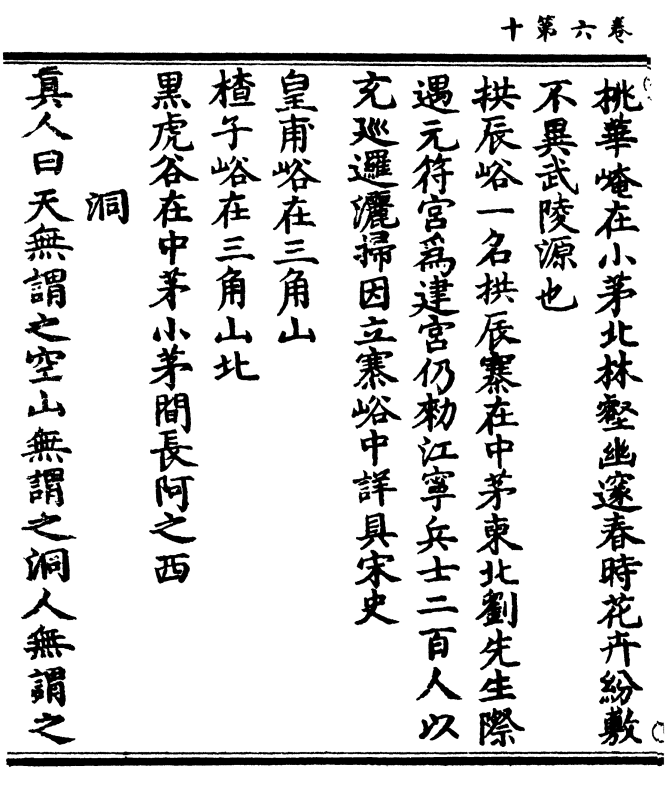 卷六第十
桃華崦在小茅北林壑幽邃春時花卉紛敷
不異武陵源也
拱辰峪一名拱辰寨在中茅東北劉先生際
遇元符宮為建宮仍勑江寧兵士二百人以
充廵邏灑掃因立寨峪中詳具宋史
皇甫峪在三角山
楂子峪在三角山北
黑虎谷在中茅小茅間長阿之西
洞
真人曰天無謂之空山無謂之洞人無謂之